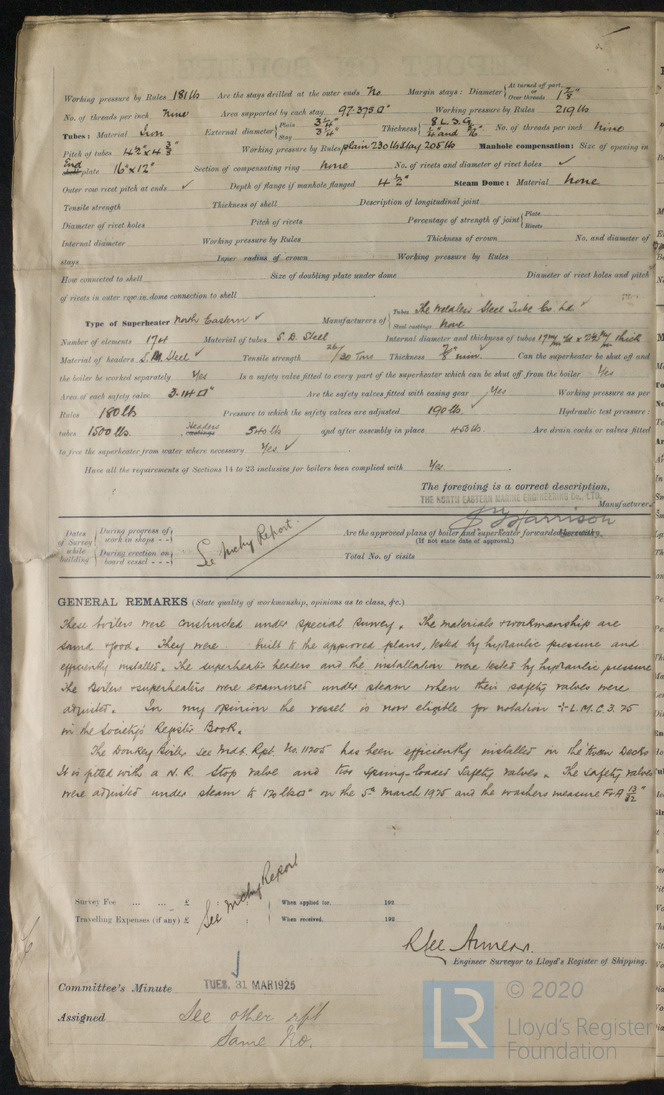 Working pressure by Rules 181 lb Are the stays drilled at the outer ends No. Margin stays: Diameter { At turned off part, or Over threads 1 7/8"
No. of threads per inch Nine Area supported by each stay 97.375 □" Working pressure by Rules 219 lb
Tubes: Material Iron External diameter { Plain 3 1/4" Stay 3 1/4" Thickness { 8 L.S.G. 1/4" and 5/16" No. of threads per inch Nine
Pitch of tubes 4 1/2" x 4 3/8" Working pressure by Rules plain 230 lb Stay 205 lb Manhole compensation: Size of opening in
End plate 16" x 12" Section of compensating ring None No. of rivets and diameter of rivet holes ✓
Outer row rivet pitch at ends ✓ Depth of flange if manhole flanged 4 1/2" Steam Dome: Material None
Tensile strength Thickness of shell Description of longitudinal joint
Diameter of rivet holes Pitch of rivets Percentage of strength of joint { Plate Rivets
Internal diameter Working pressure by Rules Thickness of crown No. and diameter of
stays Inner radius of crown Working pressure by Rules
How connected to shell Size of doubling plate under dome Diameter of rivet holes and pitch
of rivets in outer row in dome connection to shell
Type of Superheater North Eastern ✓ Manufacturers of { Tubes The Weldless Steel Tube Co Ld ✓ Steel castings None
Number of elements 174 Material of tubes S.D. Steel Internal diameter and thickness of tubes 17 m/m thick
Material of headers S.M. Steel ✓ Tensile strength 26/30 Tons Thickness Can the superheater be shut off and
the boiler be worked separately Yes Is a safety valve fitted to every part of the superheater which can be shut off from the boiler Yes
Area of each safety valve 3.14 □" Are the safety valves fitted with easing gear Yes Working pressure as per
Rules 180 lb Pressure to which the safety valves are adjusted 190 lb. ✓ Hydraulic test pressure:
tubes 1500 lb. Headers castings 540 lb and after assembly in place 450 lb. Are drain cocks or valves fitted
to free the superheater from water where necessary Yes ✓
Have all the requirements of Sections 14 to 23 inclusive for boilers been complied with Yes
The foregoing is a correct description,
THE NORTH EASTERN MARINE ENGINEERING Co., LTD. Manufacturer.
Harrison
Dates of Survey while building { During progress of work in shops - - During erection on board vessel - - - See Mchy Report.
Are the approved plans of boiler and superheater forwarded herewith
(If not state date of approval.)
Total No. of visits
GENERAL REMARKS (State quality of workmanship, opinions as to class, &c.)
These boilers were constructed under special survey. The materials & workmanship are
sound & good. They were built to the approved plans, tested by hydraulic pressure and
efficiently installed. The superheater headers and the installation were tested by hydraulic pressure
The Boilers & superheaters were examined under steam when their safety valves were
adjusted. In my opinion the vessel is now eligible for notation + L.M.C. 3.25
in the Society's Register Book.
The Donkey Boiler see Mdb. Rpt. No. 11205 has been efficiently installed on the Decks
It is fitted with a N.R. stop valve and two spring-loaded safety valves. The safety valves
were adjusted under steam to 120 lbs □" on the 5th March 1925 and the washers measure F & A 13/32"
See Mchy Report
Survey Fee ... ... £ : : When applied for, 192
Travelling Expenses (if any) £ : : When received, 192
Engineer Surveyor to Lloyd's Register of Shipping.
Committee's Minute TUES. 31 MAR 1925
Assigned See other rpt
Same No.
LR © 2020
Lloyd's Register
Foundation